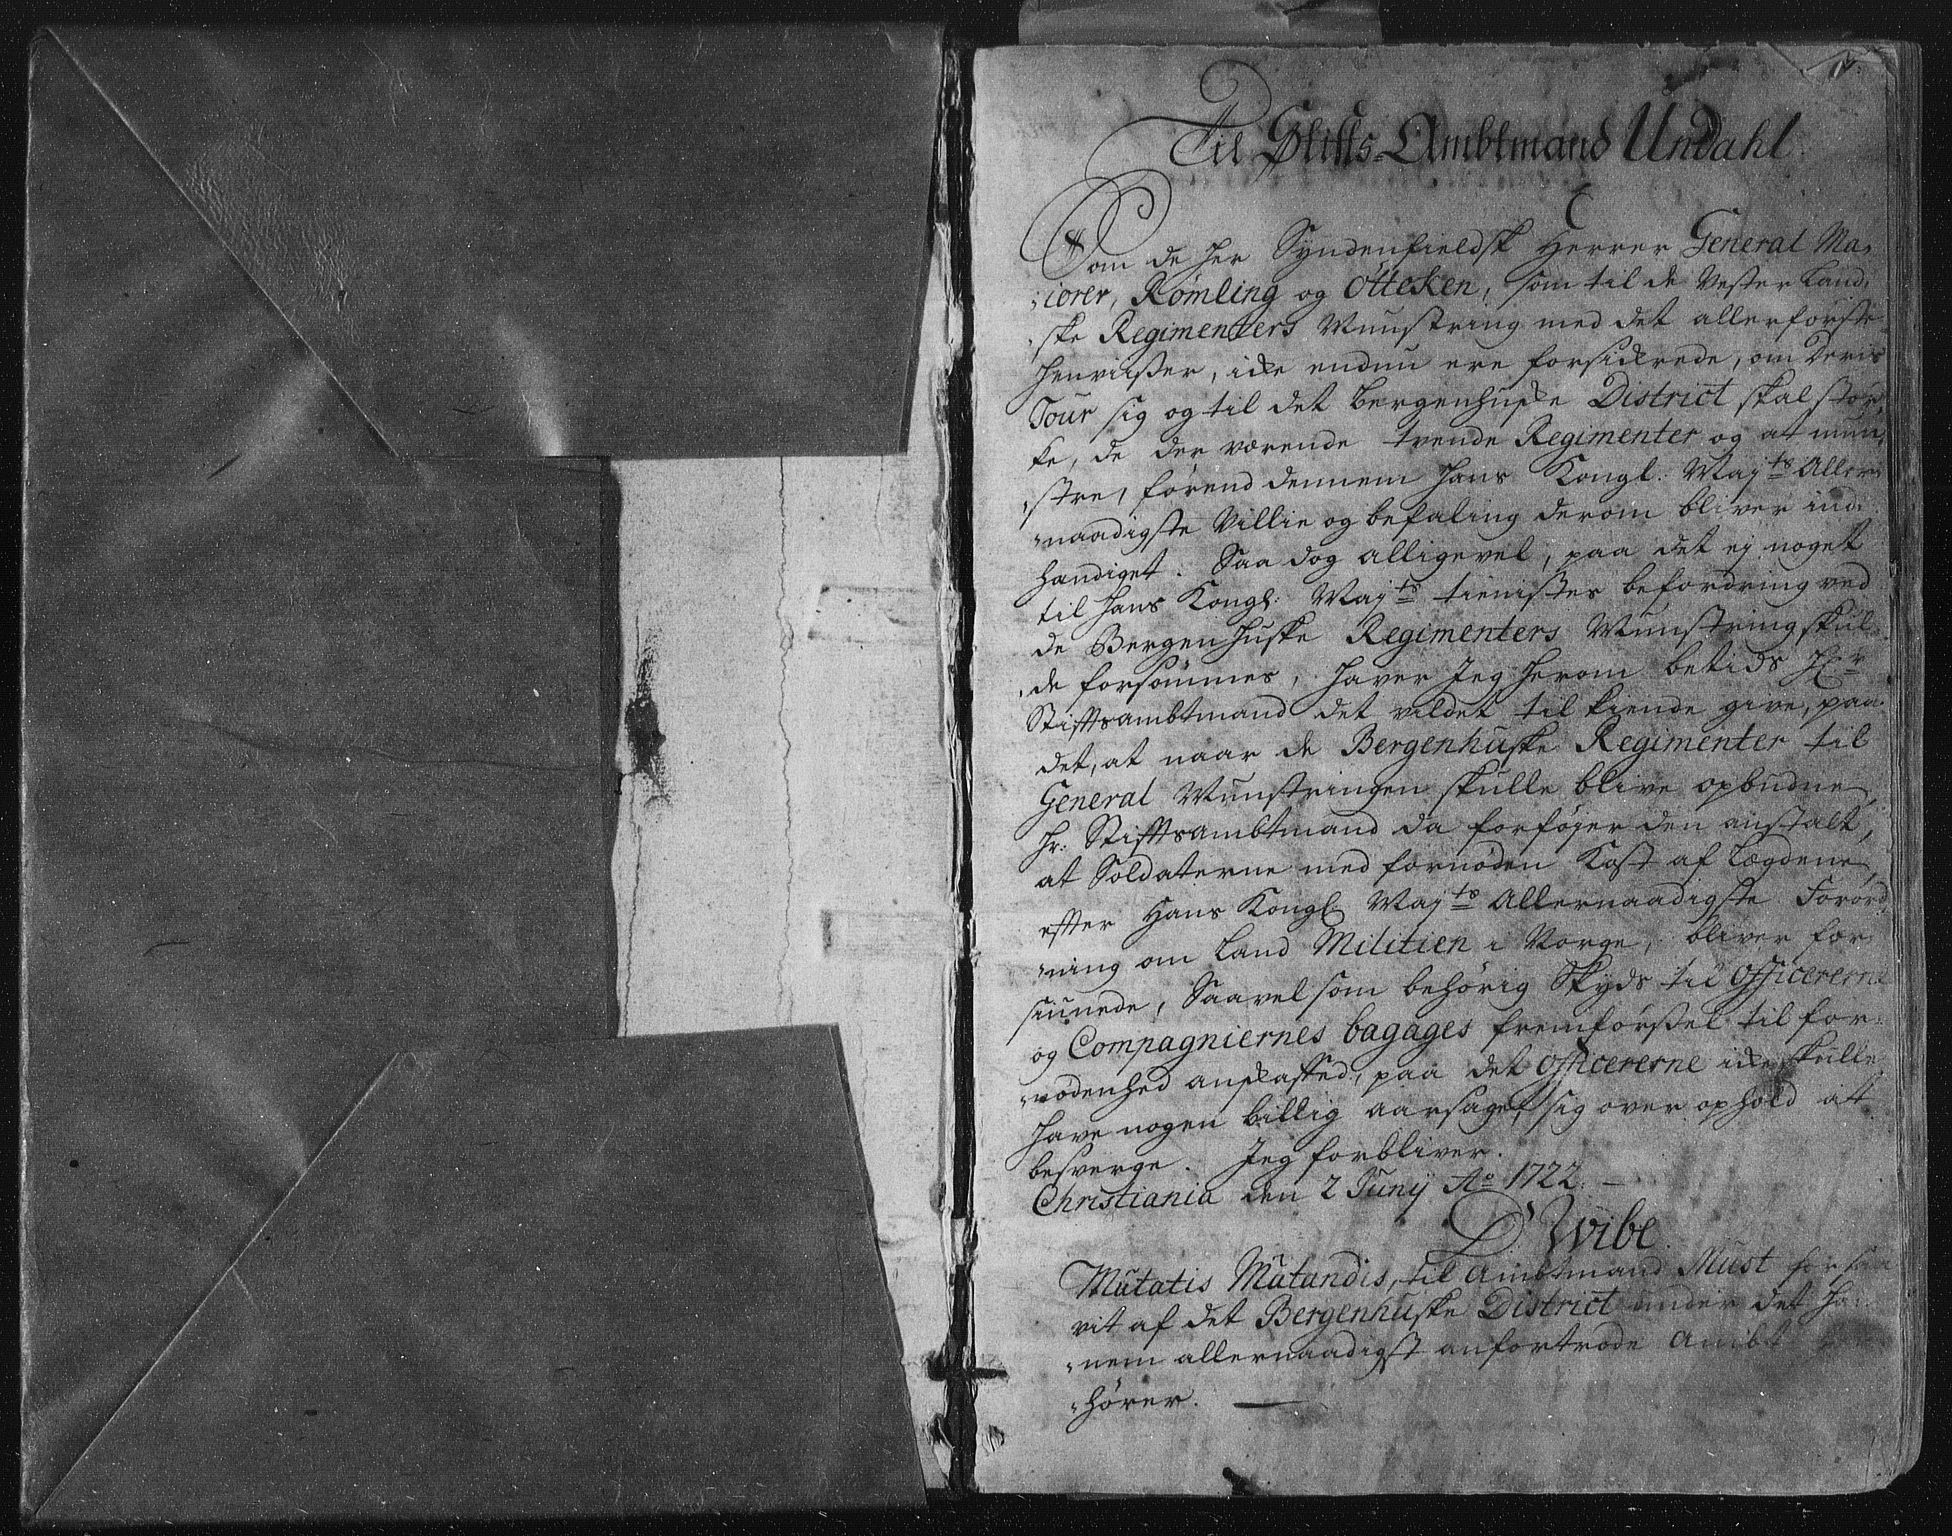 Til Stifts-Ambtmand Undahl.
Som de her Syndenfieldsk Herrer General Ma-
-iorer, Rømling og Øtteken, som til de Vesterland-
-ske Regimenters Munstring med det allerførste
henreiser, icke endnu ere forsickrede, om deris
Tour sig og til det Bergenhuske District skal stræ-
ke, de der værende tvende Regimenter og at mun-
-stre, førend dennem Hans Kongl: Mayts Aller-
-naadigste Villie og befaling derom bliver ind-
handiget. Saa dog alligevel, paa det ey noget
til Hans Kongl: Mayts tienistes befordring ved
de Bergenhuske Regimenters Munstring skul-
-de forsømmes, haver Jeg herom betids Hr
Stiftsambtmand det vildet tilkiende give, paa
det, at naar de Bergenhuske Regimenter til
General Munstringen skulle blive opbudne,
Hr: Stiftsambtmand da forføyer den anstalt,
at Soldaterne med fornøden Kost af Lægdene,
efter Hans Kongl Mayts Allernaadigste Forord-
-ning om Land Militien i Norge, bliver for-
siunede, Saavelsom behørig Skyds til Officererne
og Compagniernes bagages fremførsel til for-
-nødenhed anskaffed, paa det Officererne icke skulle
have nogen billig aarsage, sig over ophold at
besverge. Jeg forbliver.
Christiania den 2 Junij Ao 1722. —
D Wibe
Mutatis Mutandis, til Ambtmand Must forsaa
vit af det Bergenhuske District under det ha-
-nem allernaadigst anfortrode Ambt
-hører. —